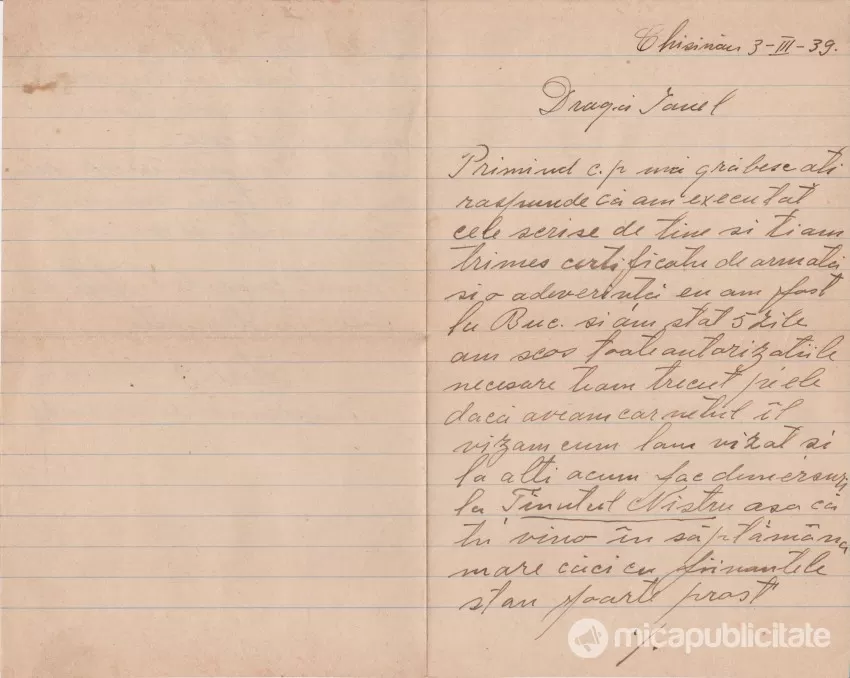 Chisinau 3-III-39.
Draga Ianel
Primind c.p mă grăbesc ati
raspunde că am executat
cele scrise de tine si tiam
trimes certificatu de armată
si o adeverintă eu am fost
la Buc. si am stat 5 zile
am scos toate autorizatiile
necesare team trecut pe ele
dacă aveam carnetul îl
vizam cum lam vizat si
la alti acum fac demersuri
la Tinutul Nistru asa că
tu vino în săptămâna
mare căci cu finantele
stau foarte prost
micapublicitate